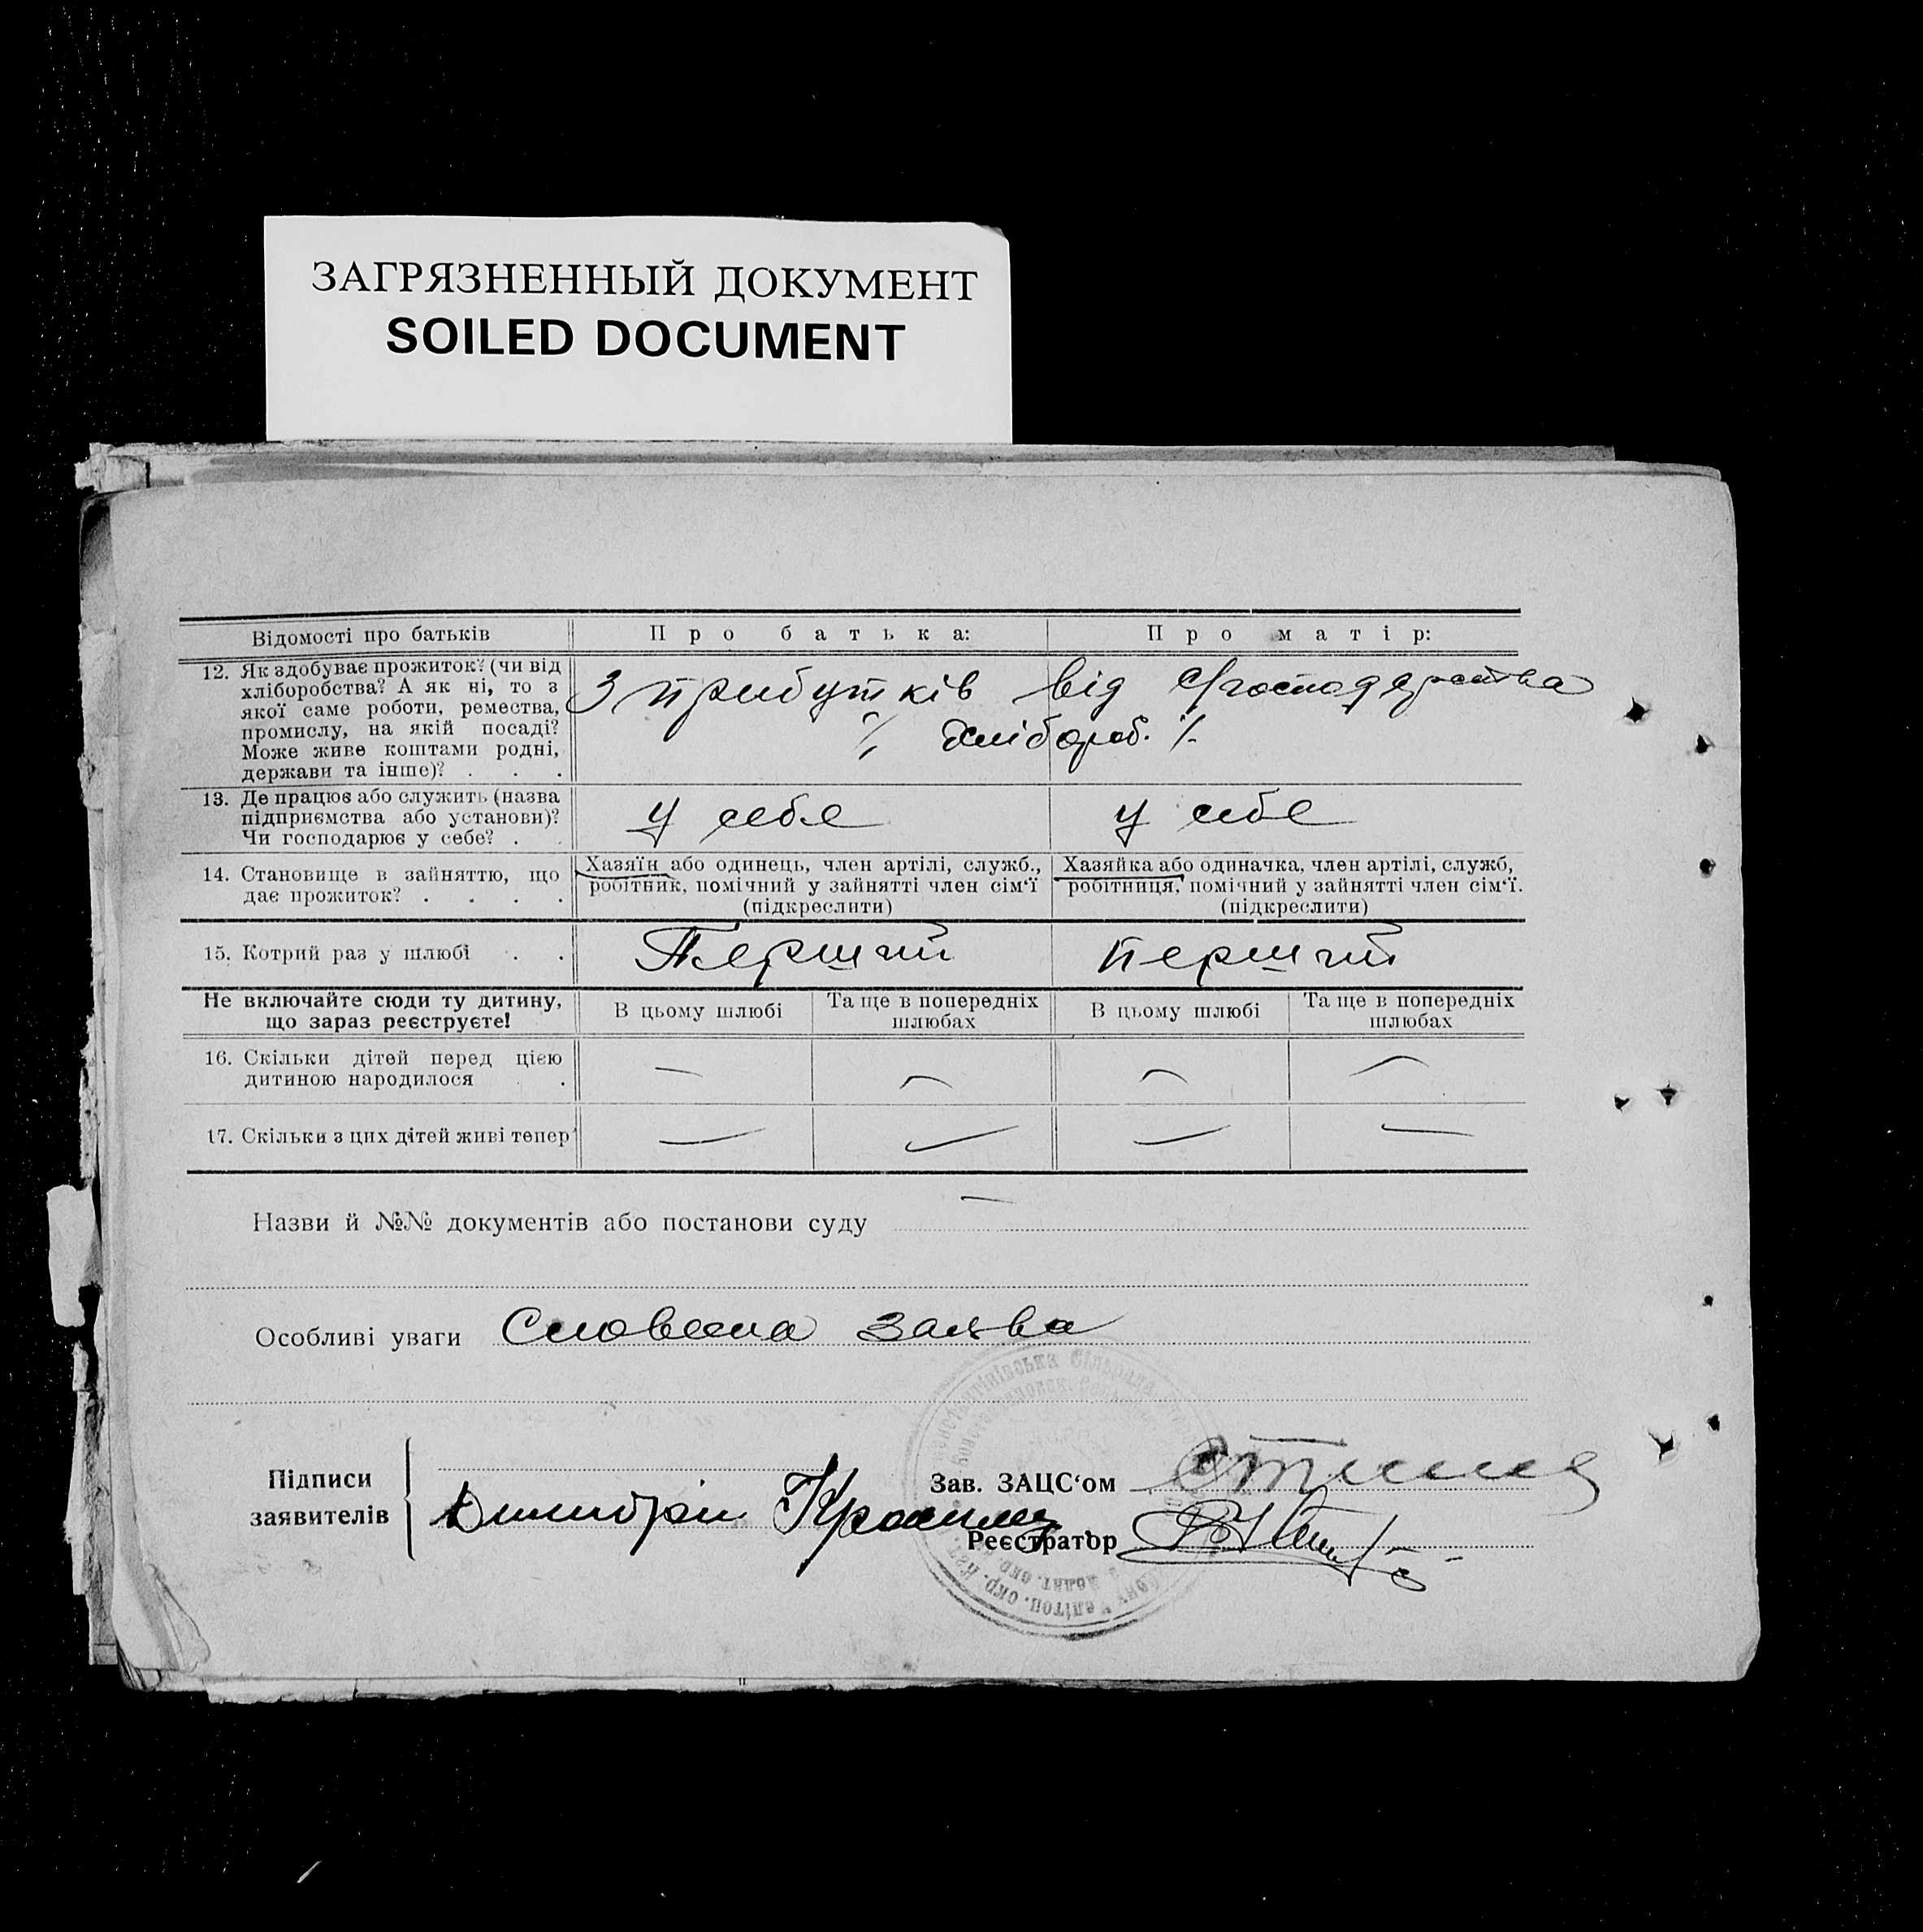 ЗАГРЯЗНЕННЫЙ ДОКУМЕНТ
SOILED DOCUMENT
Відомості про батьків
Про батька:
Про матір:
12. Як здобуває прожиток? (чи від
хліборобства? А як ні, то з
якої саме роботи, ремества,
промислу, на якій посаді?
Може живе коштами родні,
держави та інше)? . . .
З прибутків від с/господарства
% хлібороб. %
13. Де працює або служить (назва
підприємства або установи)?
Чи господарює у себе? . .
у себе
у себе
14. Становище в зайняттю, що
дає прожиток? . . . .
Хазяїн або одинець, член артілі, служб.,
робітник, помічний у зайнятті член сім'ї
(підкреслити)
Хазяйка або одиначка, член артілі, служб,
робітниця, помічний у зайнятті член сім'ї.
(підкреслити)
15. Котрий раз у шлюбі . .
Перший
перший
Не включайте сюди ту дитину,
що зараз реєструєте!
В цьому шлюбі
Та ще в попередніх
шлюбах
В цьому шлюбі
Та ще в попередніх
шлюбах
16. Скільки дітей перед цією
дитиною народилося .
— — — —
17. Скільки з цих дітей живі тепер
— — — —
Назви й №№ документів або постанови суду —
Особливі уваги Словесна заява
Підписи
заявителів
Зав. ЗАЦС'ом
Реєстратор